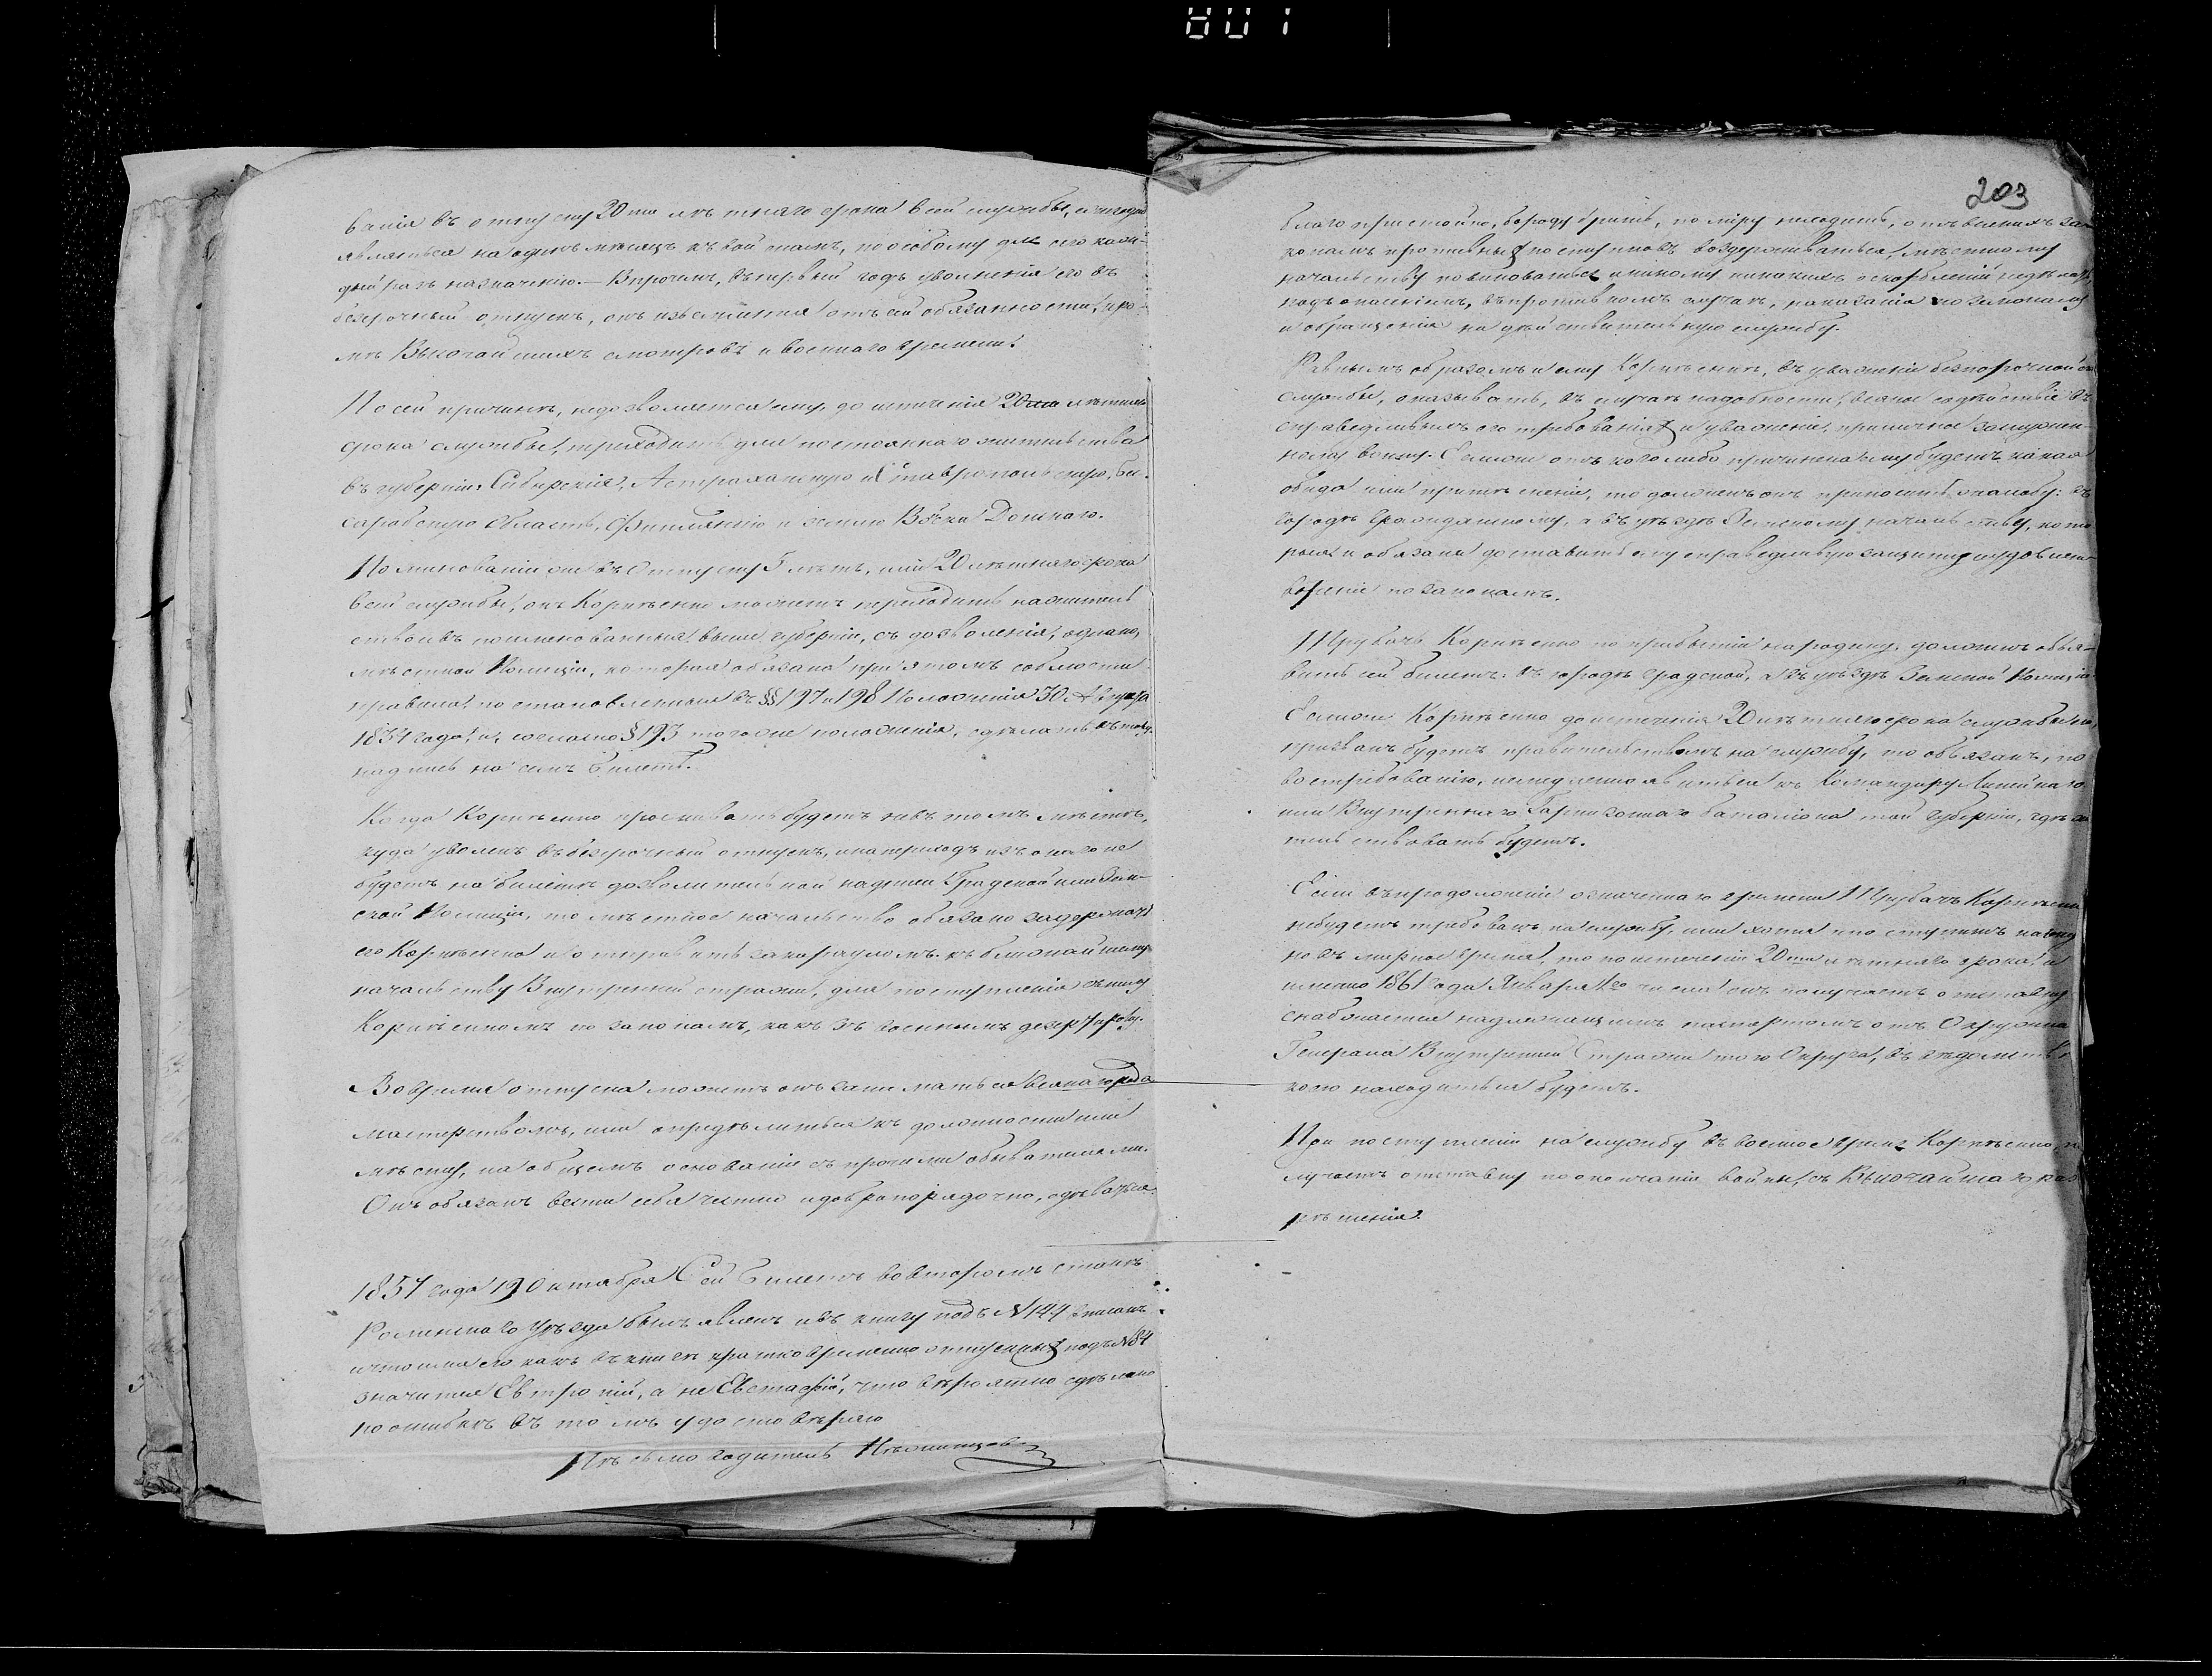 ванія въ отпуску 20ти лѣтняго срока всей службы, ежегодно
являться на одинъ мѣсяцъ къ войскамъ, по особому для сего каж-
дый разъ назначенію. — Впрочемъ, въ первый годъ увольненія его въ
безсрочный отпускъ, онъ изъемлется отъ сей обязанности, кро-
мѣ Высочайшихъ смотровъ и военнаго времени.
По сей причинѣ, недозволяется ему, до истеченія 20ти лѣтняго
срока службы, переходить для постояннаго жительства
въ губерніи: Сибирскія, Астраханскую и Ставропольскую, Бес-
сарабскую область, Финляндію и землю Войска Донскаго.
По минованіи же въ отпуску 5 лѣтъ, или 20 лѣтняго срока
всей службы, онъ Корнѣенко можетъ переходить на житель
ство и въ поименованныя выше губерніи, съ дозволенія, однако,
мѣстной Полиціи, которая обязана при этомъ соблюсти
правила, постановленныя въ §§ 197 и 198 Положенія 30 Августа
1834 года, и, согласно § 193 того же положенія, сдѣлать къ тому
надпись на семъ билетѣ.
Когда Корнѣенко проживать будетъ не въ томъ мѣстѣ,
куда уволенъ въ безсрочный отпускъ, и на переходъ изъ онаго не
будетъ на билетѣ дозволительной надписи Градской или Зем-
ской Полиціи, то мѣстное начальство обязано задержать
его Корнѣенко и отправить за карауломъ къ ближайшему
начальству Внутренней стражи, для поступленія съ нимъ
Корнѣенкомъ по законамъ, какъ съ военнымъ дезертиромъ.
Во время отпуска можетъ онъ заниматься всякаго рода
мастерствомъ, или опредѣлиться къ должности или
мѣсту, на общемъ основаніи съ прочими обывателями.
Онъ обязанъ вести себя честно и добропорядочно, одѣваться
1854 года 19 Октября Сей билетъ во второмъ станѣ
Роменскаго Уѣзда былъ явленъ и въ книгу подъ № 144 вписанъ
и что имя его какъ въ книгѣ кратковременно отпускныхъ подъ № 84
значится Евтропій, а не Евстафій, что вѣроятно сдѣлано
по ошибкѣ въ томъ удостовѣряю
Письмоводитель
203
благопристойно, бороду брить, по міру неходить, отъ всякихъ за-
конамъ противныхъ поступковъ воздерживаться, мѣстному
начальству повиноваться и никому никакихъ оскорбленій недѣлать,
подъ опасеніемъ, въ противномъ случаѣ, наказанія по законамъ
и обращенія на дѣйствительную службу.
Равнымъ образомъ и ему Корнѣенкѣ, въ уваженіи безпорочной его
службы, оказывать, въ случаѣ надобности, всякое содѣйствіе въ
справедливыхъ его требованіяхъ и уваженіе, приличное заслужен-
ному воину. Если же отъ кого либо причинена ему будетъ какая
обида или притѣсненіе, то долженъ онъ приносить жалобу: въ
городѣ Гражданскому, а въ уѣздѣ Земскому начальству, кото
рыя и обязаны доставить ему справедливую защиту и удовлет-
вореніе по законамъ.
Трубачъ Корнѣенко по прибытіи на родину, долженъ объя-
вить сей билетъ: въ городѣ градской, а въ уѣздѣ Земской Полиціи.
Если же Корнѣенко до истеченія 20 лѣтняго срока службы его,
призванъ будетъ правительствомъ на службу, то обязанъ, по
востребованію, немедленно явиться къ Командиру Линейнаго
или Внутренняго Гарнизоннаго баталіона той губерніи, гдѣ жи
тельствовать будетъ.
Если въ продолженіи означеннаго времени Трубачъ Корнѣенко
небудетъ требованъ на службу, или хотя и поступитъ на оную
но въ мирное время, то по истеченіи 20ти лѣтняго срока, и
именно 1861 года Января 1го числа онъ получаетъ отставку
снабжается надлежащимъ паспортомъ отъ Окружна
Генерала Внутренней Стражи того Округа, въ вѣдомствѣ
коего находиться будетъ.
При поступленіи на службу въ военное время Корнѣенко, по
лучаетъ отставку по окончаніи войны, съ Высочайшаго раз
рѣшенія.